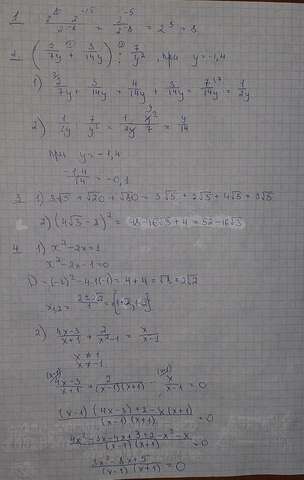 1
= 2³ = 8
2 (2/7y + 3/14y) : 7/y², при y = -1,4
1) 2/7y + 3/14y = 4/14y + 3/14y = 7/14y = 1/2y
2) 1/2y : 7/y² = 1/2y · y²/7 = y/14
при y = -1,4
-1,4/14 = -0,1
3 1) 3√5 + √20 + √80 = 3√5 + 2√5 + 4√5 = 9√5
2) (4√3 - 2)² = 48 - 16√3 + 4 = 52 - 16√3
4 1) x² - 2x = 1
x² - 2x - 1 = 0
D = (-2)² - 4·1·(-1) = 4 + 4 = √8 = 2√2
x₁,₂ = 2±2√2/2 =
2) 4x-3/x+1 + 2/x²-1 = x/x-1
x ≠ 1
x ≠ -1
(x-1) 4x-3/x+1 + 2/(x-1)(x+1) (x+1) x/x-1 = 0
(x-1)(4x-3)+2-x(x+1)/(x-1)(x+1) = 0
4x²-3x-4x+3+2-x²-x/(x-1)(x+1) = 0
3x²-8x+5/(x-1)(x+1) = 0